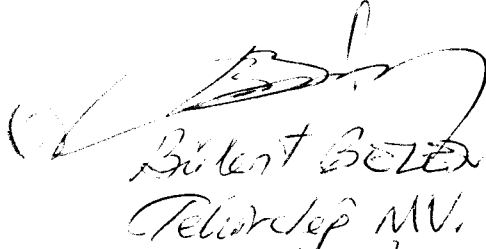 Bülent BELEN
Tekirdağ MV.